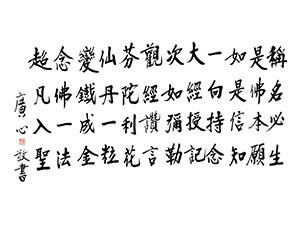 稱名必生
是佛本願
如是信知
一向持念
大經授記
次如彌勒
觀經讚言
芬陀利花
仙丹一粒
變鐵成金
念佛一法
超凡入聖
廣心敬書